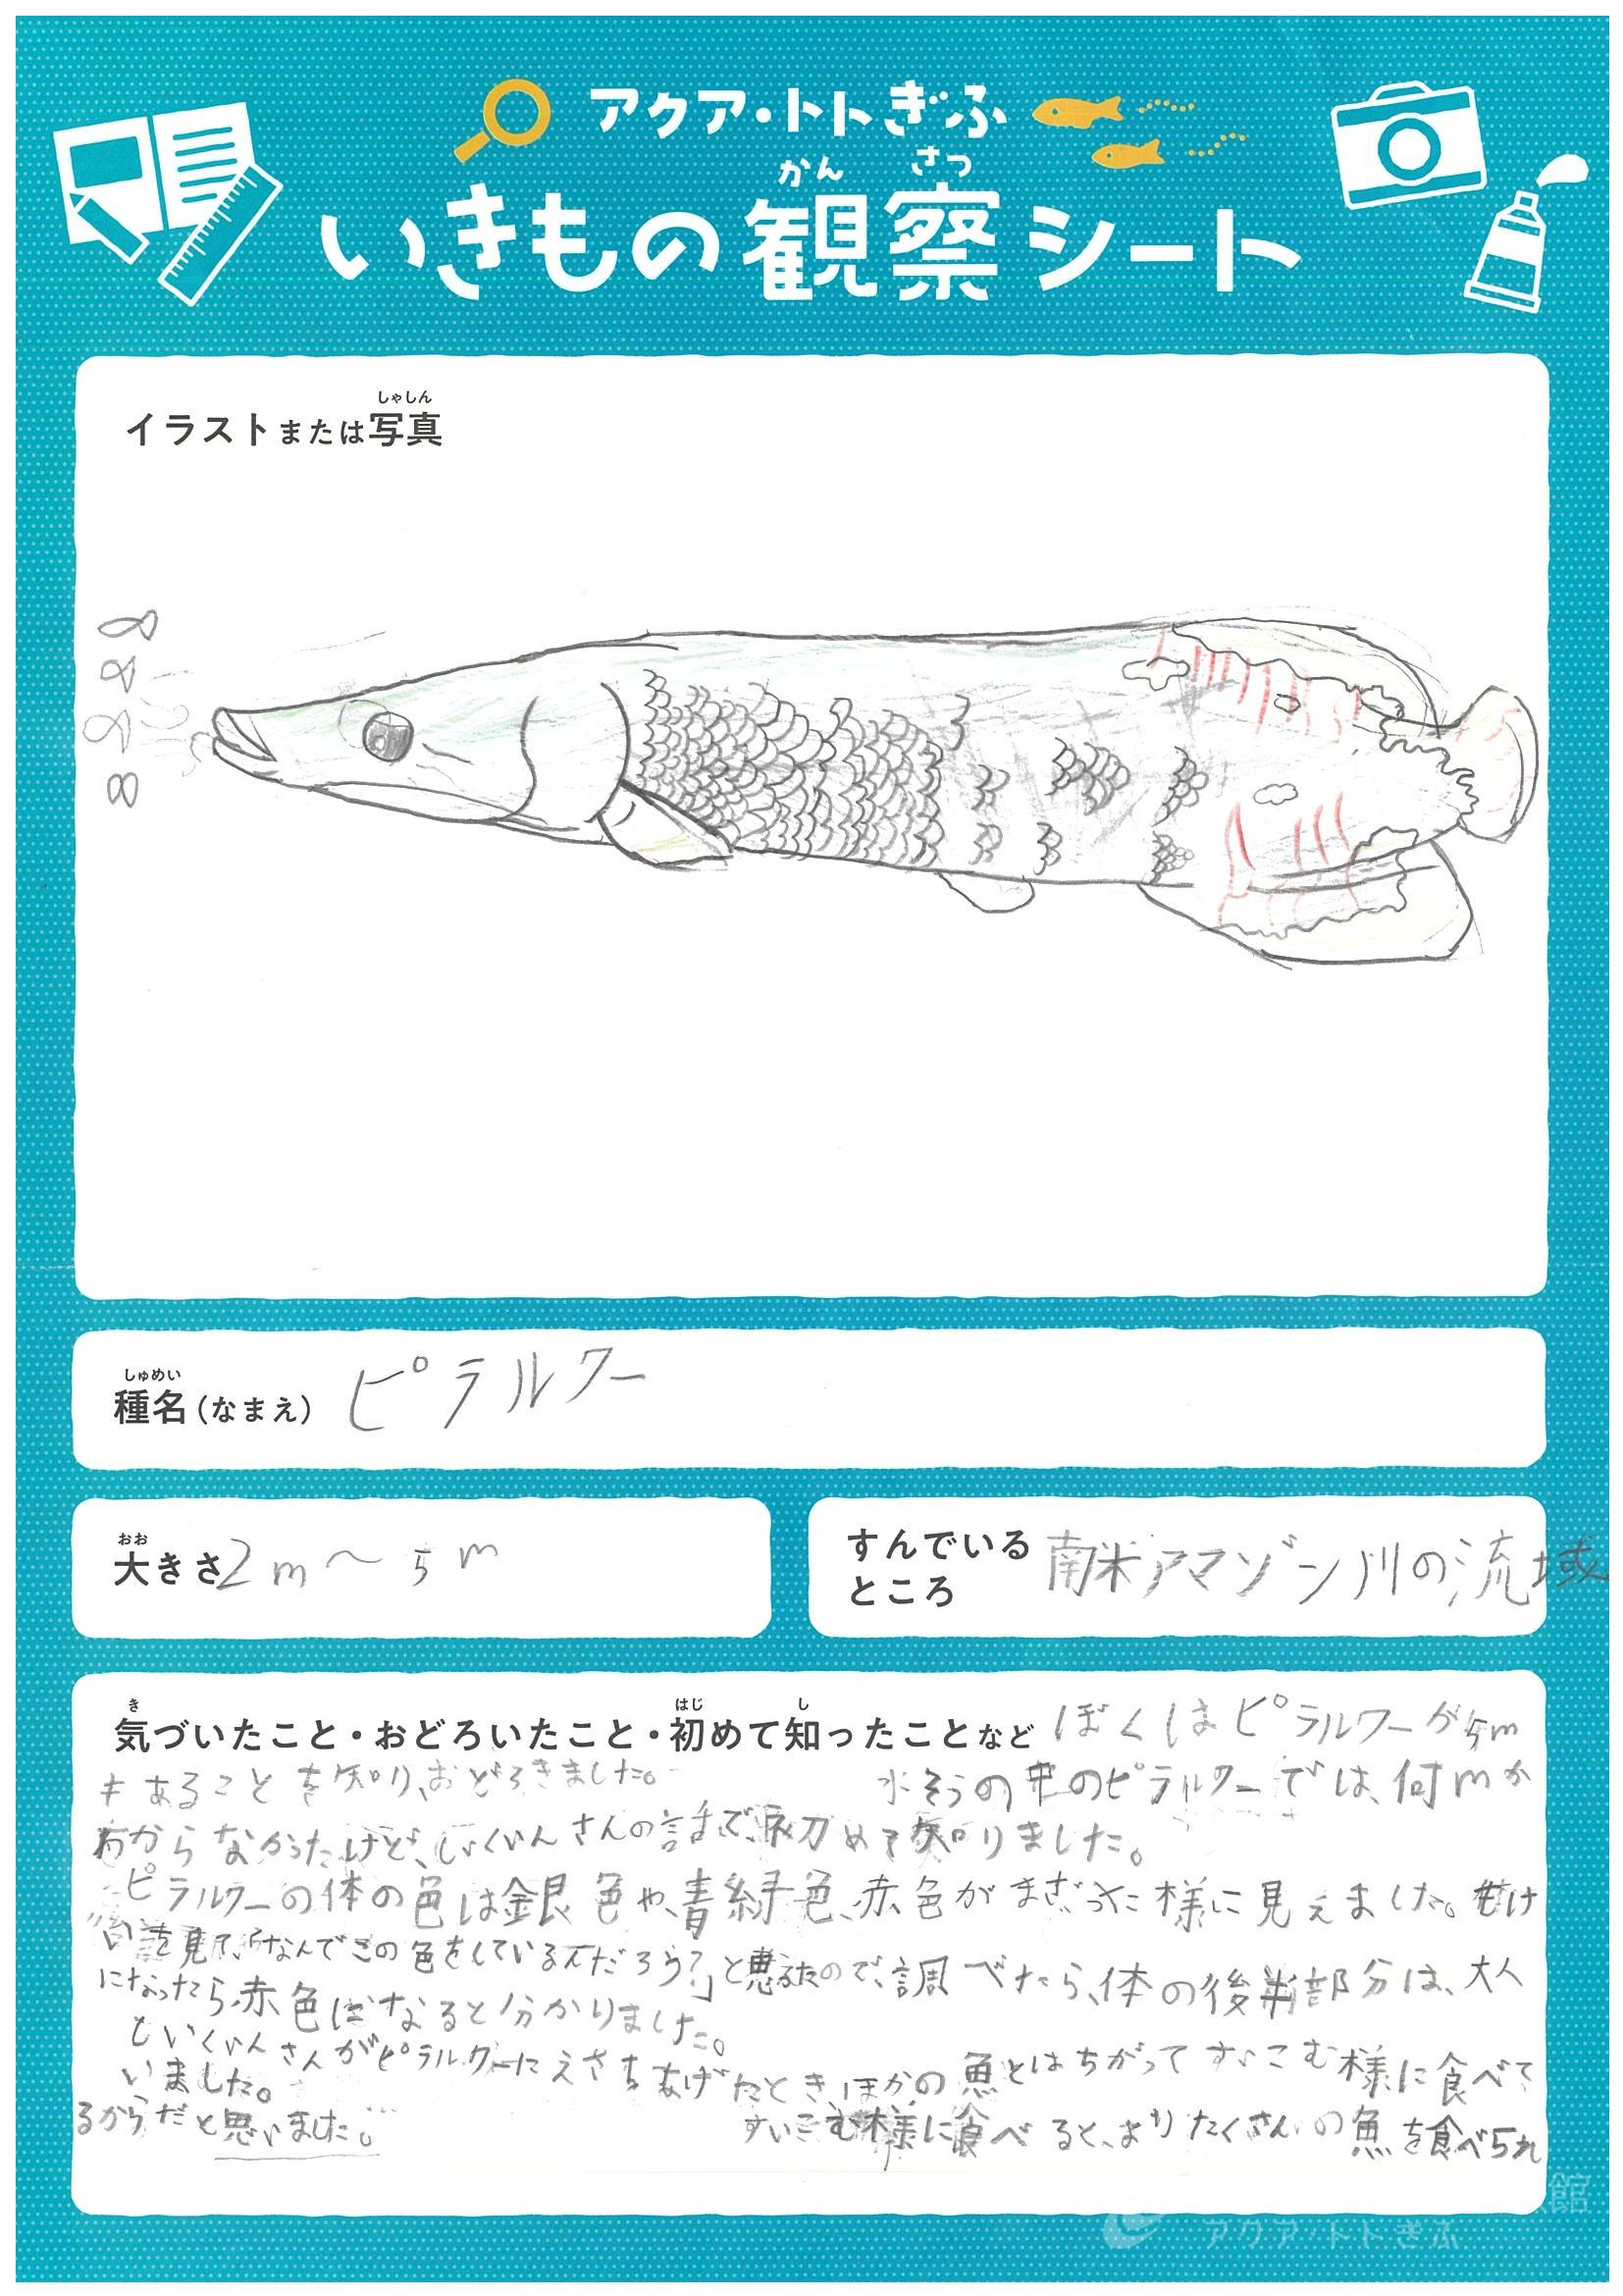 アクア・トトぎふ
かん さつ
いきもの観察シート
しゃしん
イラストまたは写真
しゅめい
種名(なまえ) ピラルクー
おお
大きさ 2m〜5m
すんでいる
ところ
南米アマゾン川の流域
き はじ し
気づいたこと・おどろいたこと・初めて知ったことなど ぼくはピラルクーが5m
もあることを知り、おどろきました。 水そうの中のピラルクーでは、何mか
わからなかったけど、しいくいんさんの話で、初めて知りました。
ピラルクーの体の色は銀色や、青緑色、赤色がまざった様に見えました。
を見て、「なんでこの色をしているんだろう?」と思ったので、調べたら、体の後半部分は、大人
になったら赤色になると分かりました。
しいくいんさんがピラルクーにえさをあげたとき、ほかの魚とはちがってすいこむ様に食べて
いました。
すいこむ様に食べると、よりたくさんの魚を食べられ
るからだと思いました。
館
アクア・トトぎふ